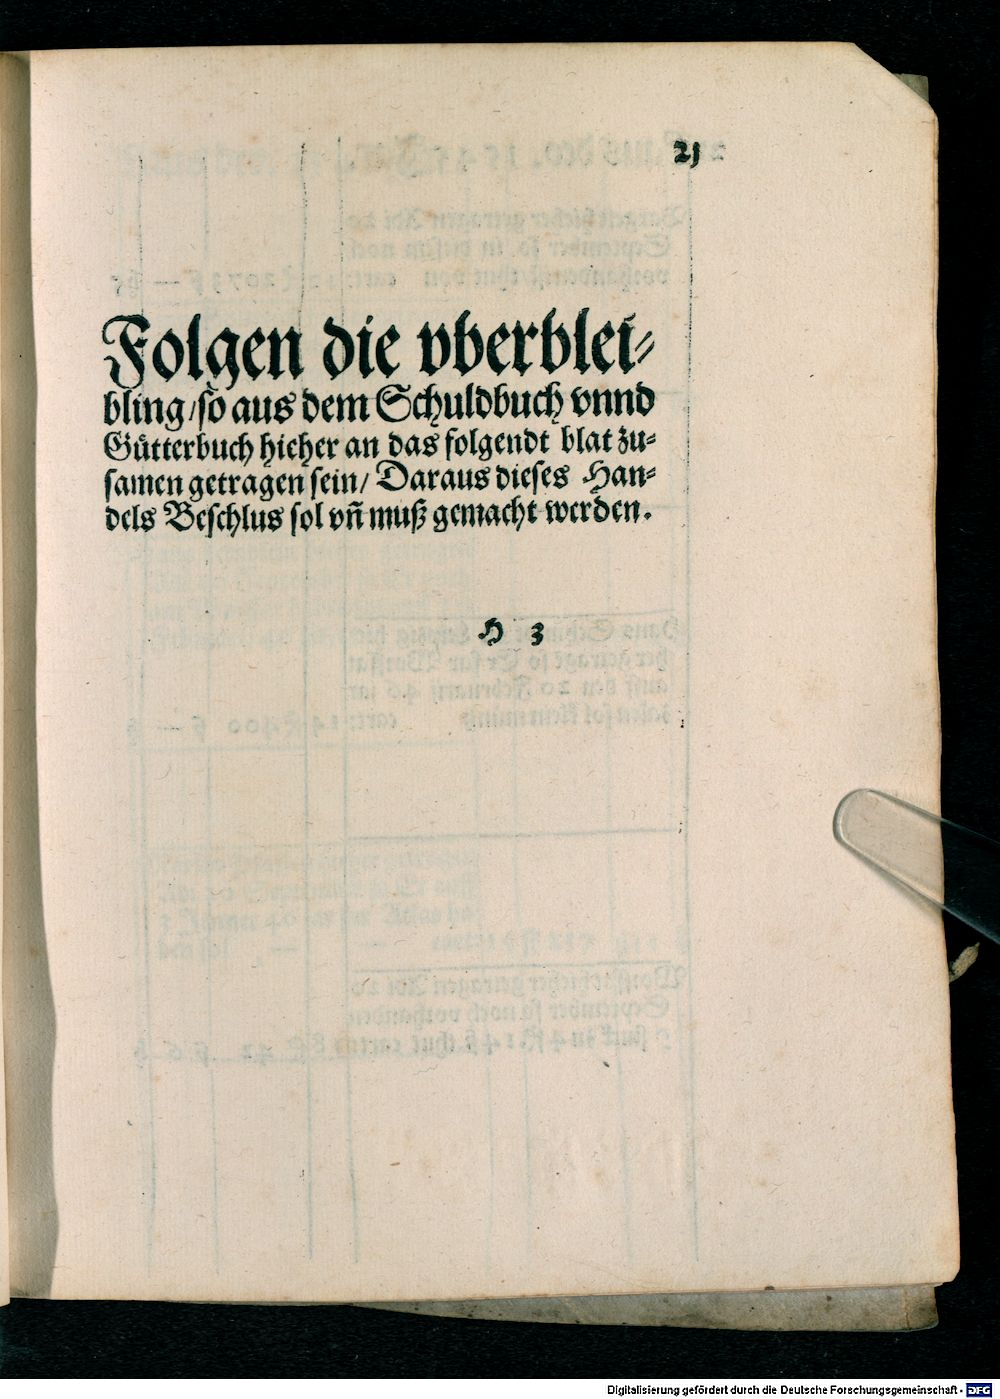 21
Folgen die vberblei⸗
bling / so aus dem Schuldbuch vnnd
Gütterbuch hieher an das folgendt blat zu⸗
samen getragen sein / Daraus dieses Han⸗
dels Beschlus sol vñ muß gemacht werden.
H 3
Digitalisierung gefördert durch die Deutsche Forschungsgemeinschaft - DFG